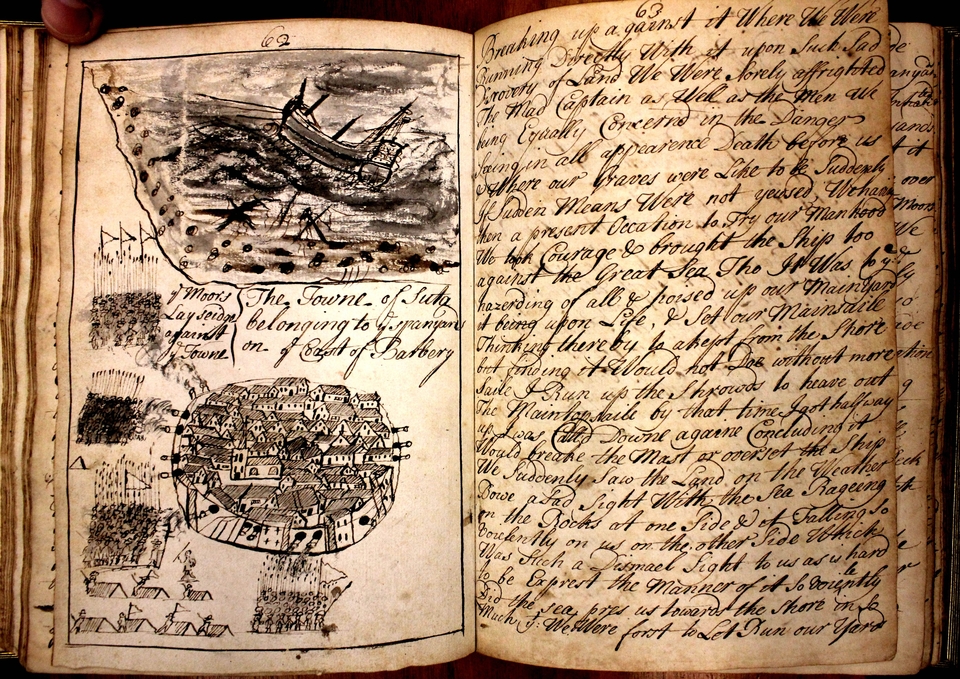 62
ye Moors
Lay seidge
against
ye Towne
The Towne of Suta
belonging to ye spanyards
on ye Coast of Barbery
63
Breaking up against it Where We Were
Running Directly With it upon Such Sad
Discovery of Land We Were Sorely affrighted
The Mad Captain as Well as the Men We
being Equally Concernd in the Danger
Seing in all appearence Death before us
& Where our Graves were Like to be Suddenly
If Sudden Means Were not yeused, We having
then a present Occation to Try our Manhood
We took Courage & brought the Ship too
against the Great Sea Tho It Was to ye
hazerding of all & hoised up our Mainyard
it being upon Life, & Set our Mainsaile
Thinking thereby to akept from the Shore
but finding it Would not Doe without more
Saile I Run up the Shrowds to heave out
The Maintopsaile by that time I got halfway
up I was Calld Downe againe Concluding it
Would breake the Mast or overset the Ship
We Suddenly Saw the Land on the Weather
Bowe a Sad Sight With the Sea Rageing
on the Rocks at one Side & of Falling So
Voielently on us on the other Side Which
Was Such a Dismael Sight to us as is hard
to be Exprest the Manner of it So Voielently
Did the Sea pres us towards the Shore in So
Much yt We Were forst to Let Run our Yard